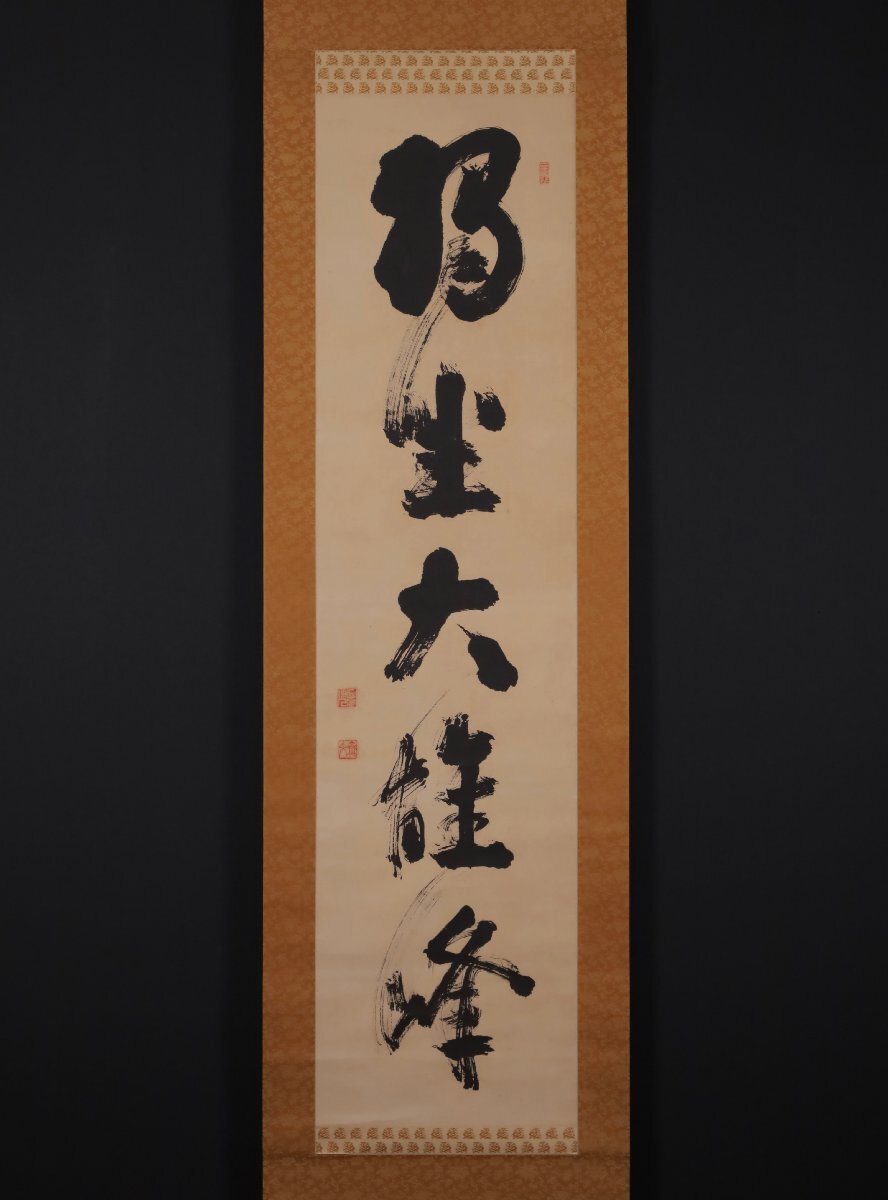 獨坐大雄峰